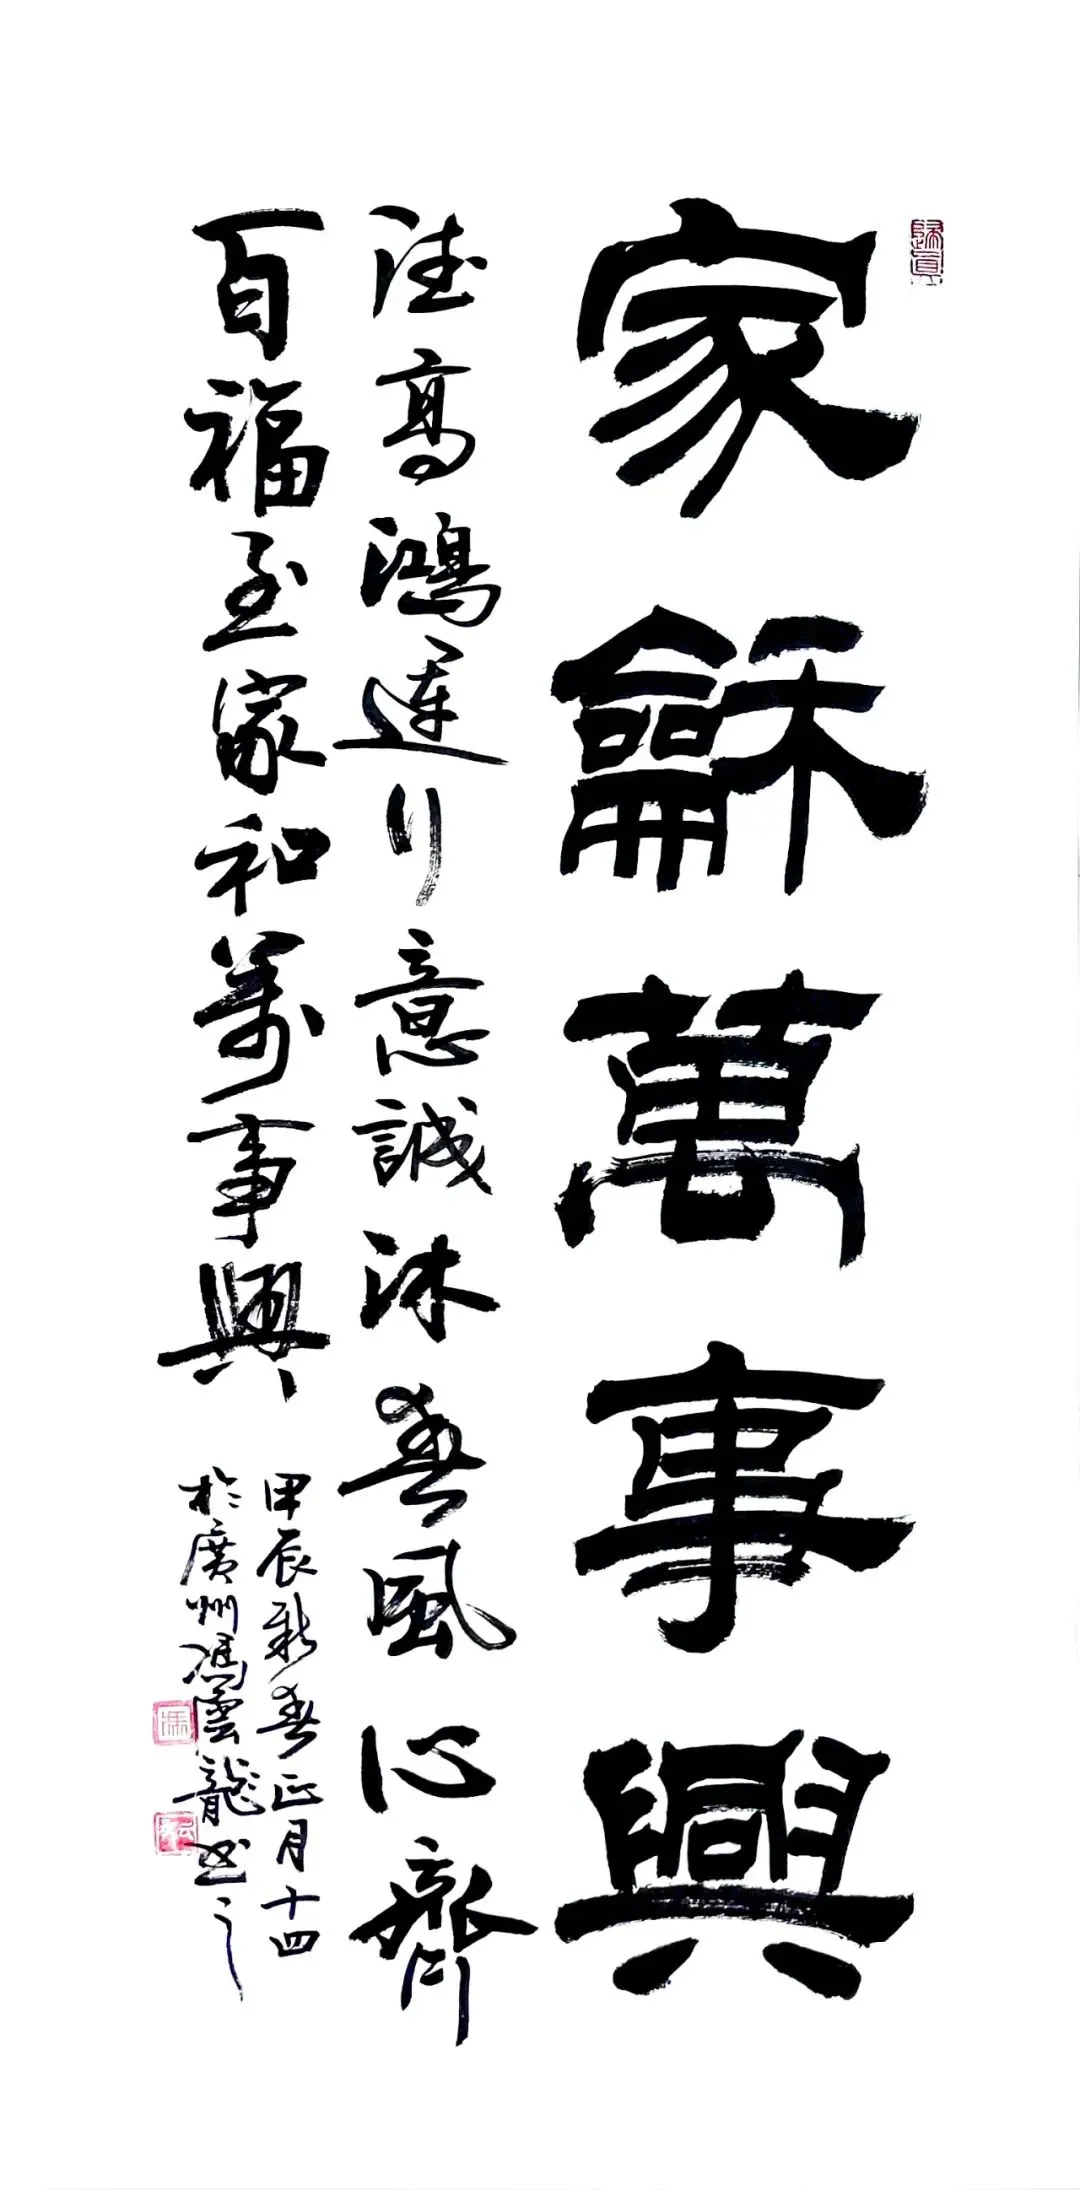 歸真
家龢萬事興
德高鴻運行意誠沐春風心齊
百福至家和萬事興
甲辰新春正月十四
於廣州馮雲龍书之